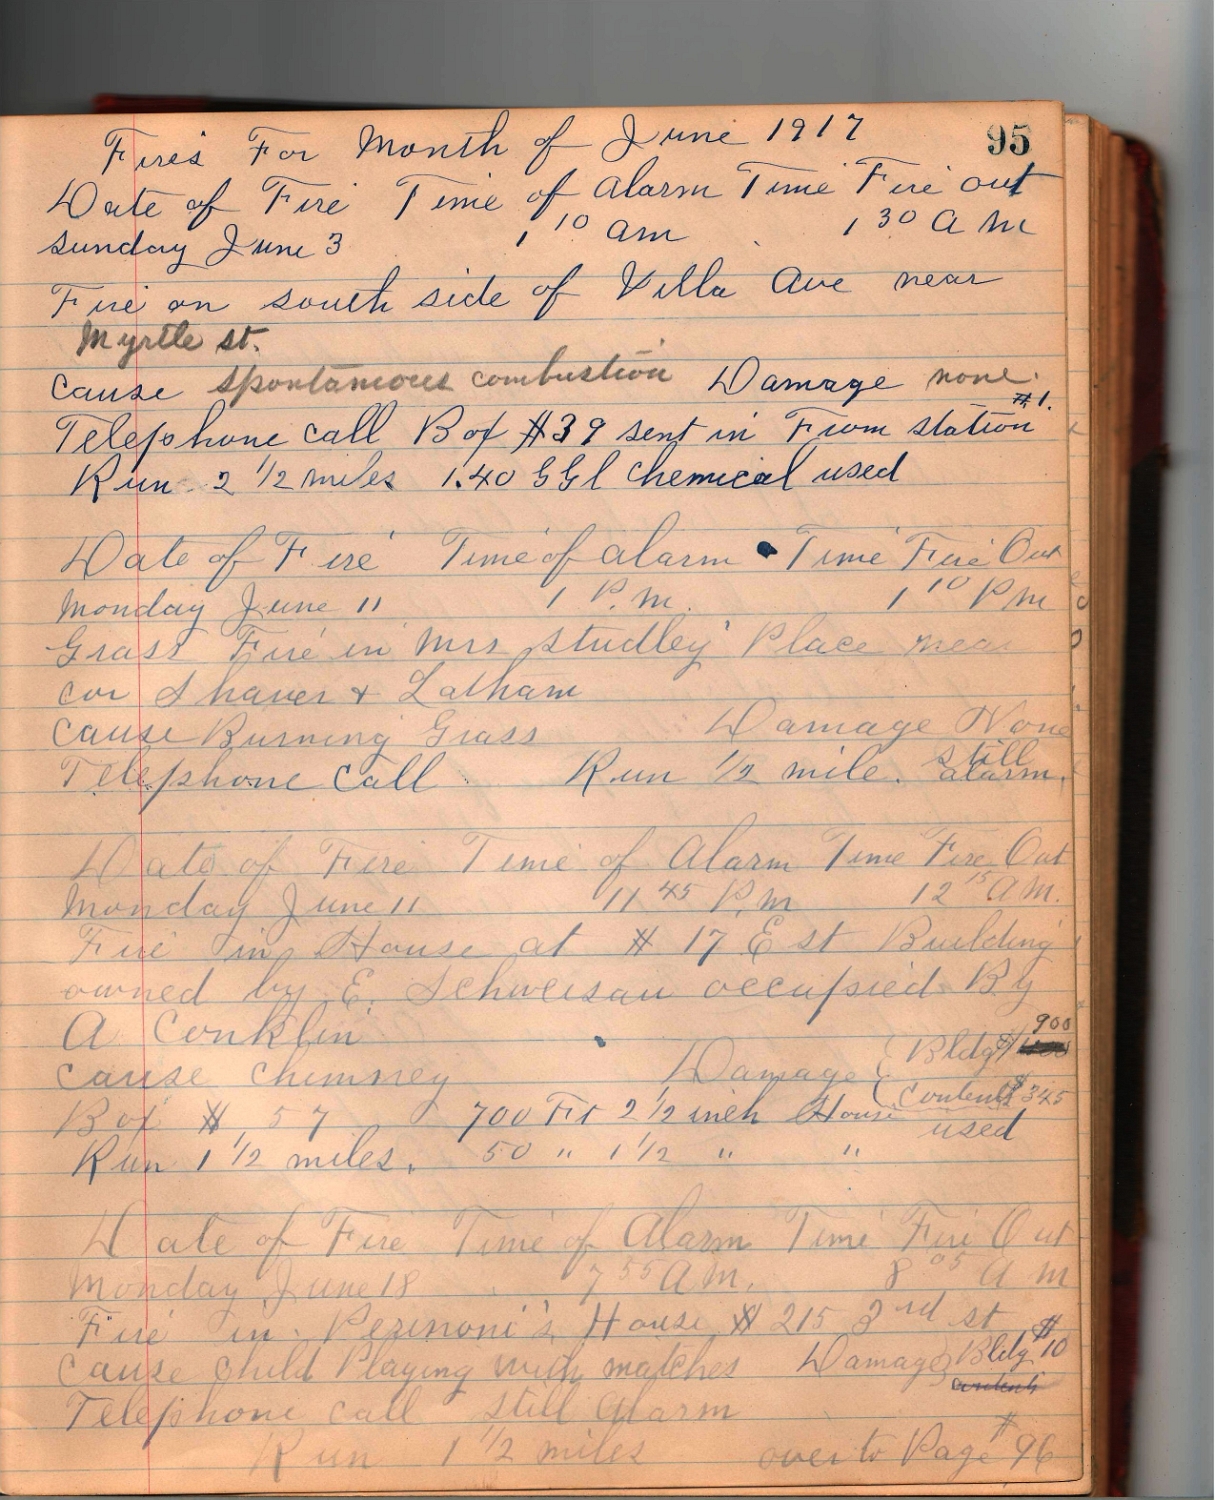 95
Fires For Month of June 1917
Date of Fire Time of alarm Time Fire out
sunday June 3 1 10 am 1 30 A M
Fire on south side of Villa Ave near
Myrtle st.
cause spontamous combustion Damage none.
Telephone call Box #39 sent in From station #1.
Run 2 1/2 miles 1.40 GGl Chemical used
Date of Fire Time of alarm Time Fire Out
Monday June 11 1 P.M. 1 10 P M
Grass Fire in Mrs Studley Place near
cor Shaver + Latham
cause Burning Grass Damage None
Telephone Call Run 1/2 mile. still alarm.
Date of Fire Time of Alarm Time Fire Out
Monday June 11 11 45 P.M 12 15 A M.
Fire in House at # 17 E st Building
owned by E. occupied By
A Conklin
cause chimney Damage Bldg $ 900
Contents $345
Box # 57 700 Ft 2 1/2 inch House used
Run 1 1/2 miles. 50 " 1 1/2 " "
Date of Fire Time of Alarm Time Fire Out
Monday June 18 7 55 A M. 8 05 A M
Fire in Perinoni's House # 215 3rd st
cause child Playing with matches Damage Bldg $10
contents
Telephone call still Alarm
Run 1 1/2 miles over to Page # 96